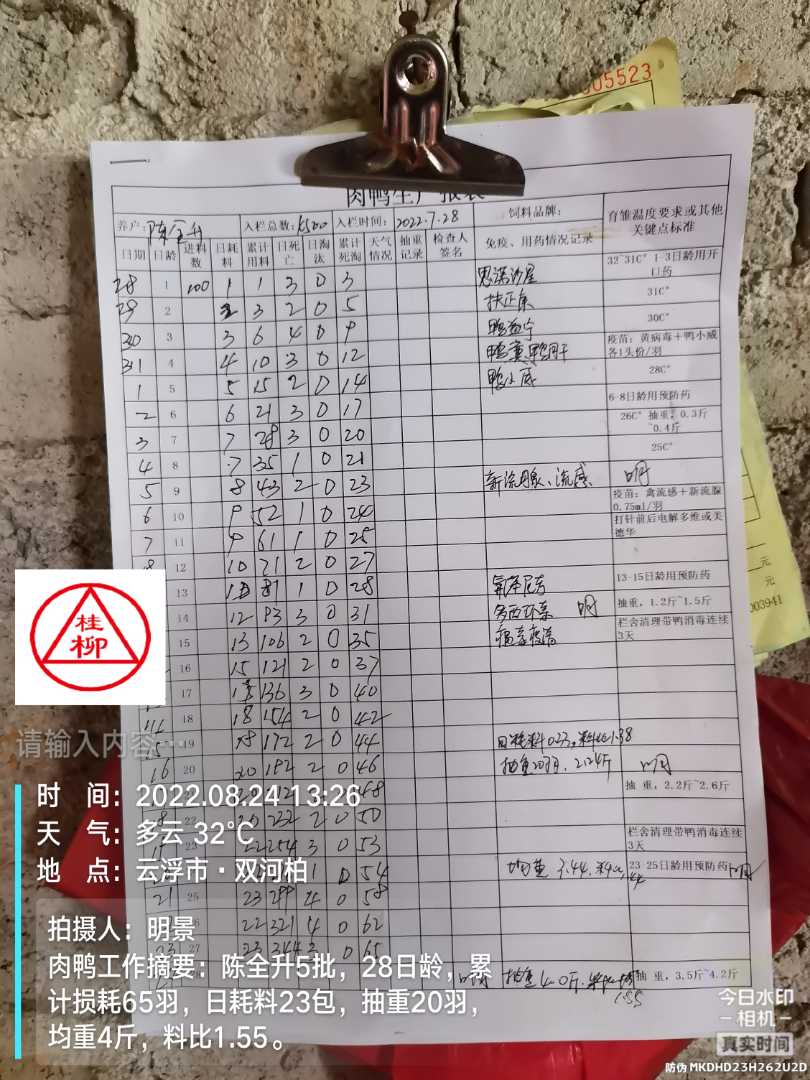 005523
肉鸭生产报表
养户: 陈全升 入栏总数: 6500 入栏时间: 2022.7.28 饲料品牌: 育雏温度要求或其他关键点标准
日期 日龄 进料数 日耗料 累计用料 日死亡 日淘汰 累计死淘 天气情况 抽重记录 检查人签名 免疫、用药情况记录
28 1 100 1 1 3 0 3 32~31C° 1-3日龄用开口药
29 2 2 3 2 0 5 扶正 31C°
30 3 3 6 4 0 9 鸭益宁 30C°
31 4 4 10 3 0 12 疫苗：黄病毒＋鸭小感各1头份/羽
1 5 5 15 2 0 14 鸭小感 28C°
2 6 6 21 3 0 17 6-8日龄用预防药
3 7 7 28 3 0 20 26C° 抽重：0.3斤~0.4斤
4 8 7 35 1 0 21 25C°
5 9 8 43 2 0 23 流感 明
6 10 9 52 1 0 24 疫苗：禽流感＋新流腺0.75ml/羽
7 11 9 61 1 0 25 打针前后电解多维或美德华
8 12 10 71 2 0 27
13 81 1 0 28 13-15日龄用预防药
14 12 93 3 0 31 多西环素 明 抽重，1.2斤~1.5斤
15 13 106 2 0 35 栏舍清理带鸭消毒连续3天
16 15 121 2 0 37
17 136 3 0 40
18 18 154 2 0 42
15 19 18 172 2 0 44 日耗料023,料比1.38
16 20 20 192 2 0 46 抽重20羽,2.124斤 明
212 48 抽 重，2.2斤~2.6斤
22 20 232 2 0 50
22 254 3 0 53 栏舍清理带鸭消毒连续3天
0 54 均重 3.44, 料比 23-25日龄用预防药 明
21 25 23 299 4 0 58
22 321 4 0 62
23 27 23 344 3 0 65
明 抽重4.0斤, 1.55 抽 重，3.5斤~4.2斤
元
元
003941
桂柳
请输入内容…
时 间：2022.08.24 13:26
天 气：多云 32℃
地 点：云浮市·双河柏
拍摄人：明景
肉鸭工作摘要：陈全升5批，28日龄，累
计损耗65羽，日耗料23包，抽重20羽，
均重4斤，料比1.55。
今日水印
相机
真实时间
防伪 MKDHD23H262U2D